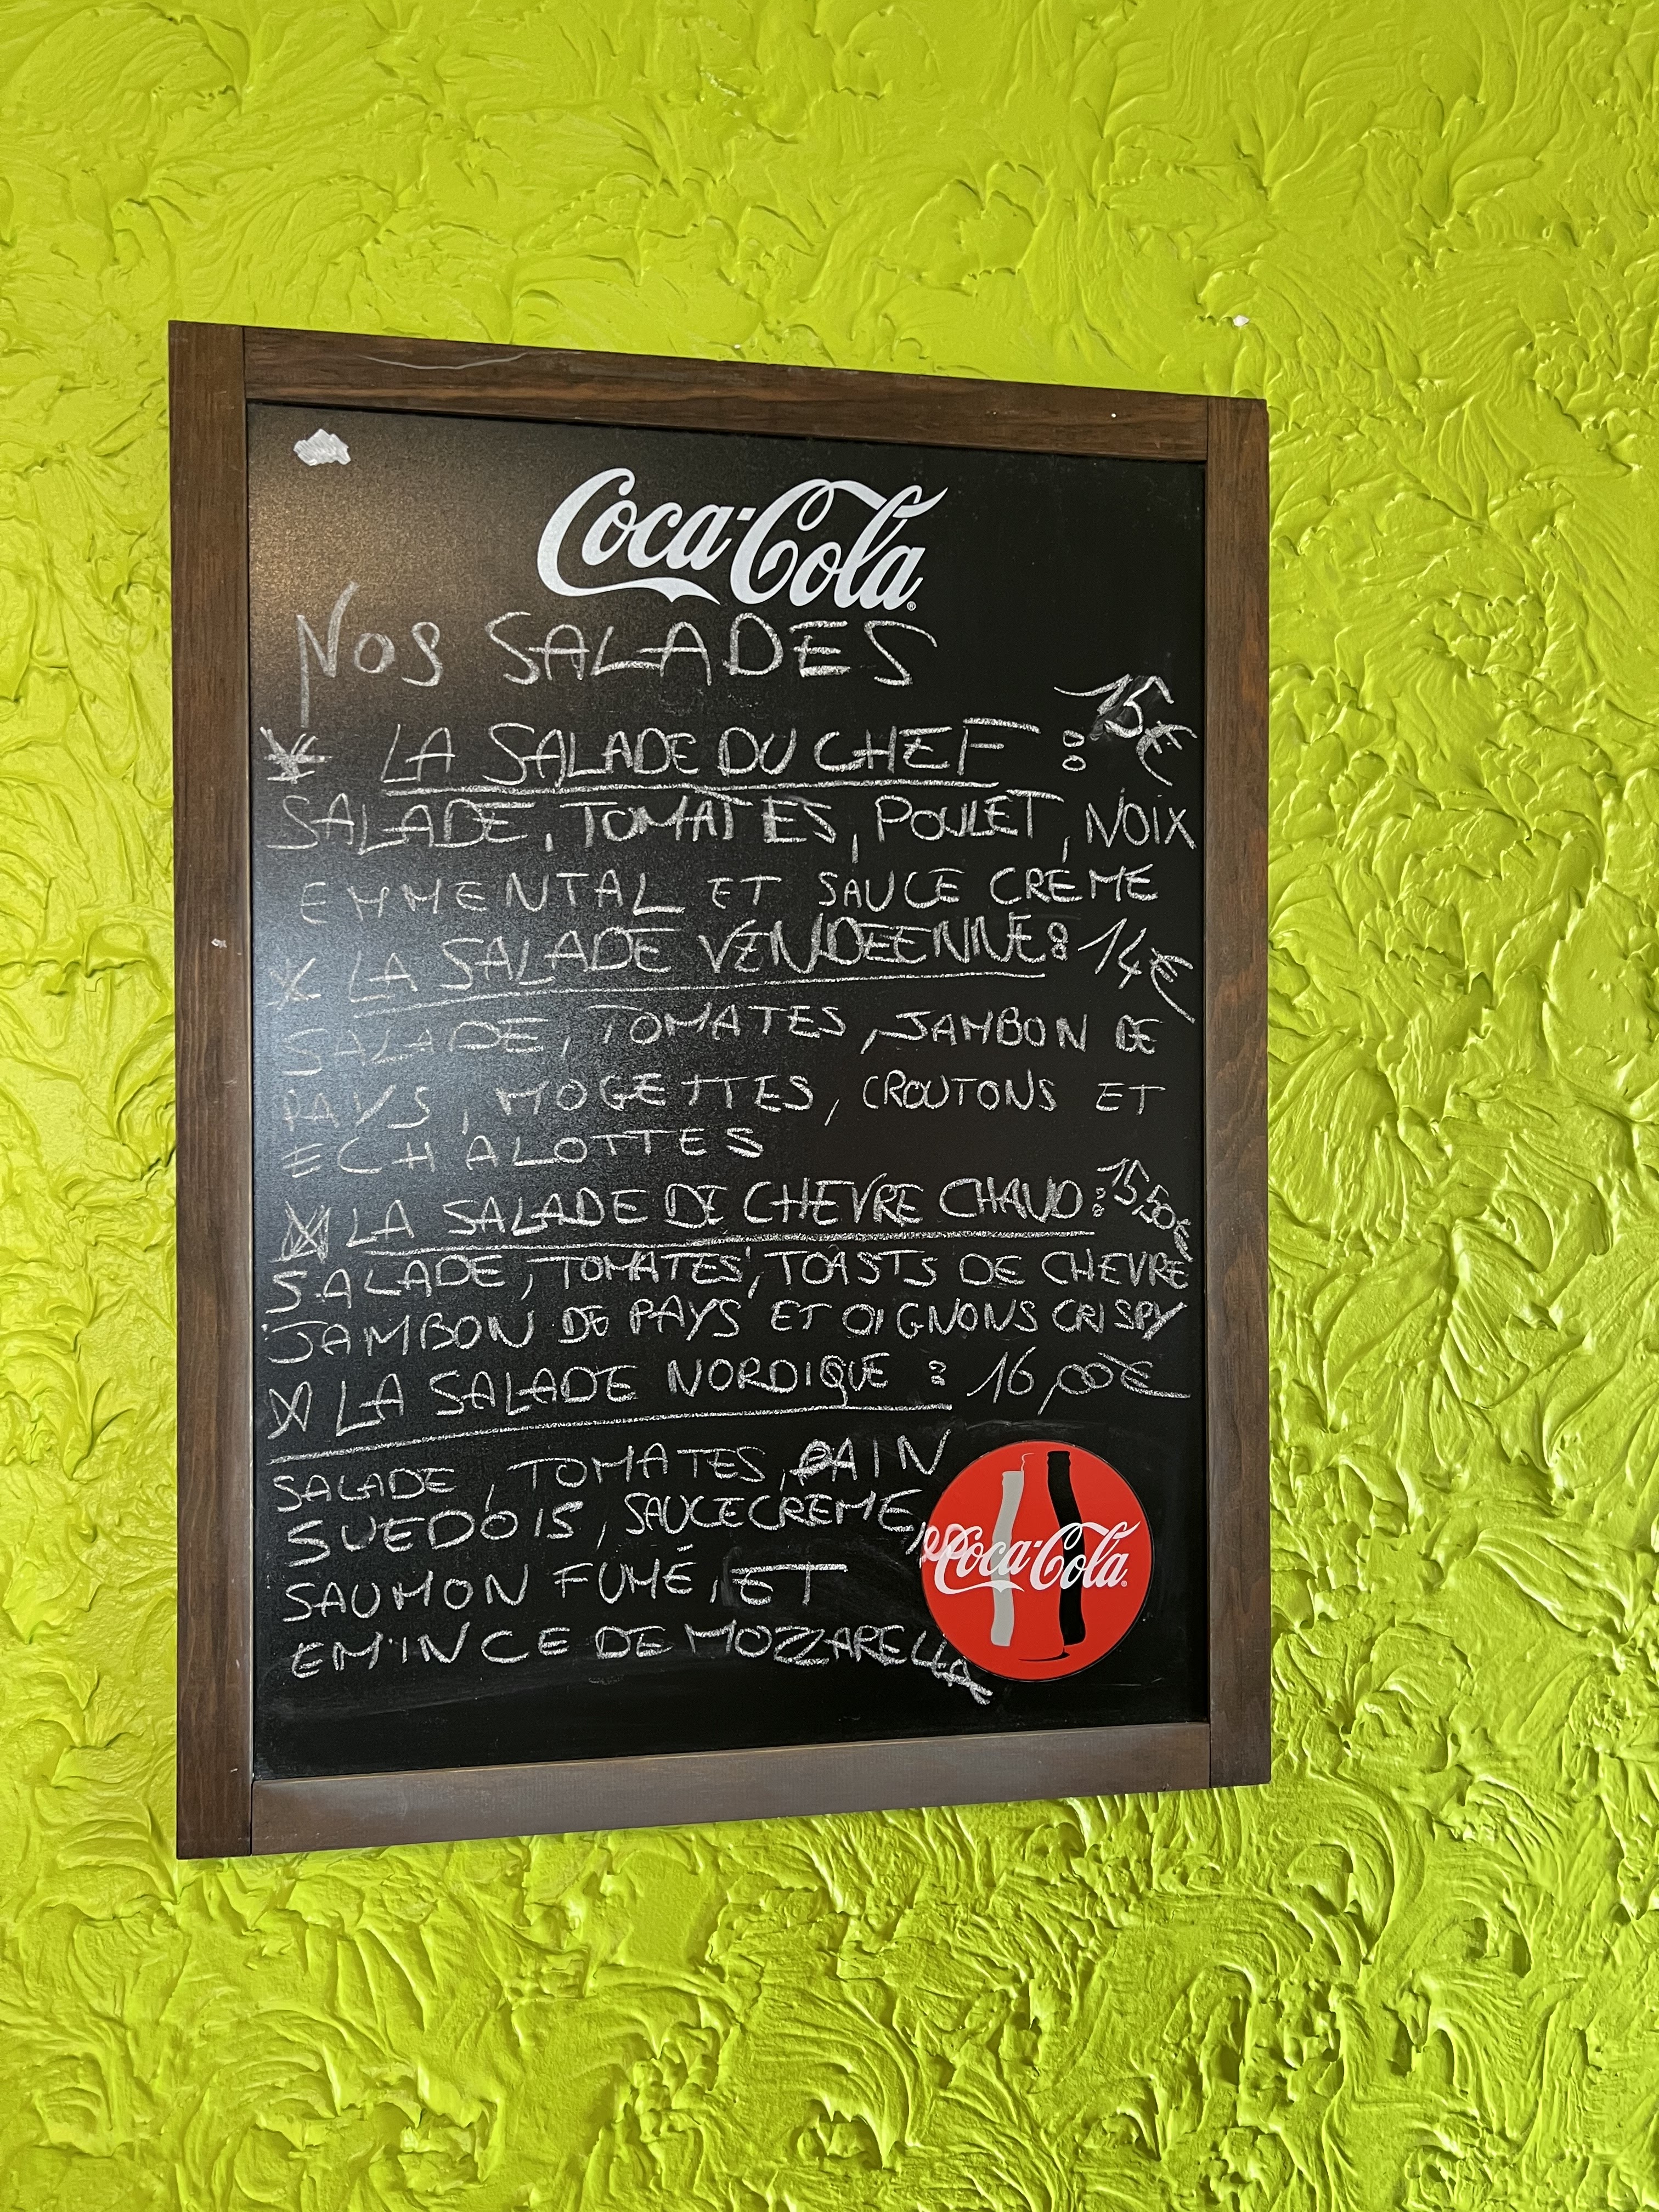 Coca-Cola
NOS SALADES
* LA SALADE DU CHEF : 15€
SALADE, TOMATES, POULET, NOIX
EMMENTAL ET SAUCE CRÉME
* LA SALADE VENDEENNE : 14€
SALADE, TOMATES, JAMBON DE
PAYS, MOGETTES, CROUTONS ET
ECHALOTTES
* LA SALADE DE CHEVRE CHAUD : 15,50€
SALADE, TOMATES, TOASTS DE CHEVRE
JAMBON DE PAYS ET OIGNONS CRISPY
* LA SALADE NORDIQUE : 16,00€
SALADE, TOMATES, PAIN
SUEDOIS, SAUCE CREME,
SAUMON FUMÉ, ET
EMINCE DE MOZZARELLA
Coca-Cola